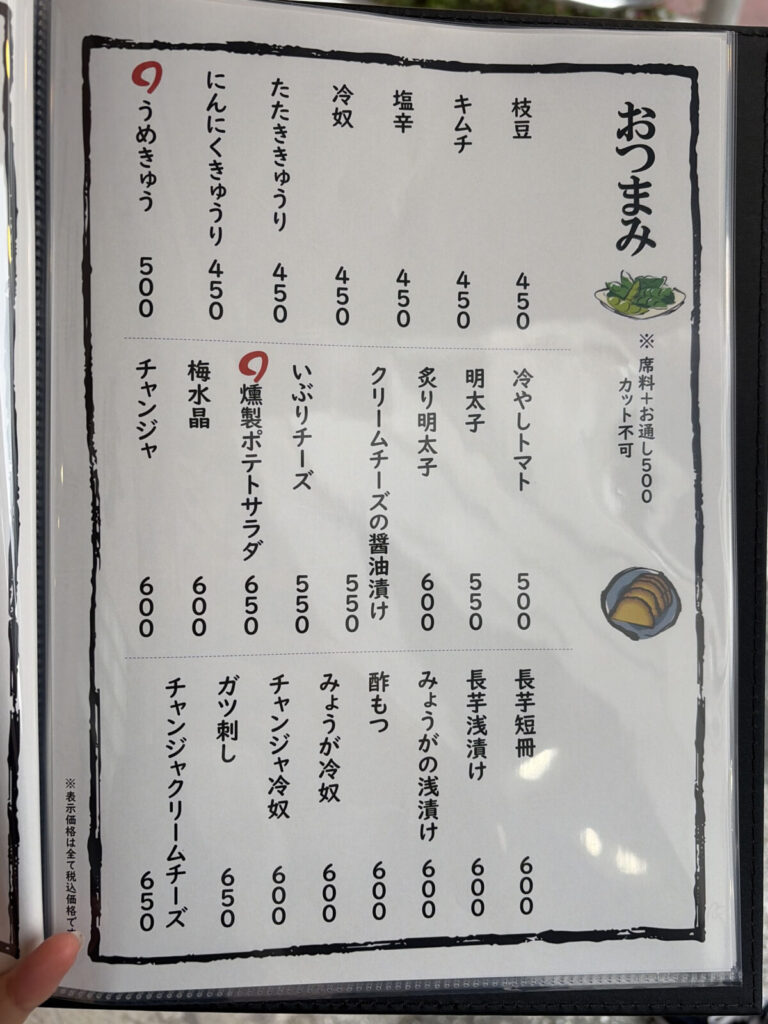 おつまみ
※席料+お通し500
カット不可
枝豆 450
キムチ 450
塩辛 450
冷奴 450
たたききゅうり 450
にんにくきゅうり 450
うめきゅう 500
冷やしトマト 500
明太子 550
炙り明太子 600
クリームチーズの醤油漬け 550
いぶりチーズ 550
燻製ポテトサラダ 650
梅水晶 600
チャンジャ 600
長芋短冊 600
長芋浅漬け 600
みょうがの浅漬け 600
酢もつ 600
みょうが冷奴 600
チャンジャ冷奴 600
ガツ刺し 650
チャンジャクリームチーズ 650
※表示価格は全て税込価格で